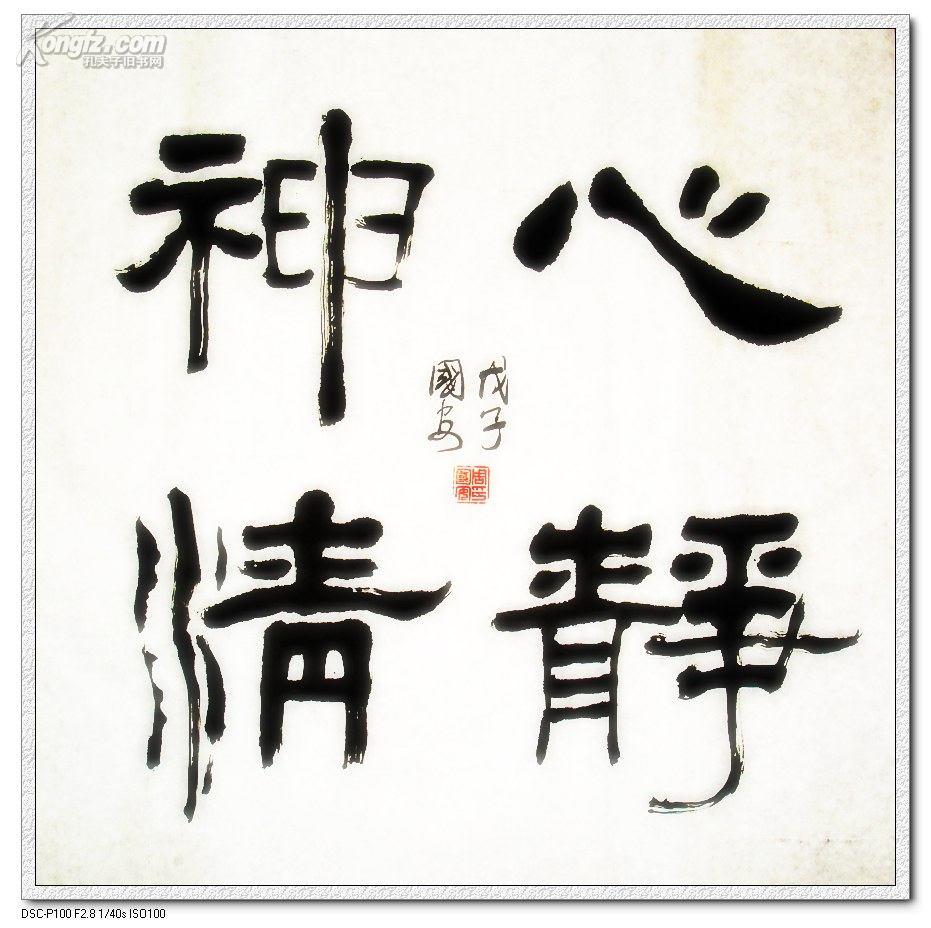 Kongfz.com
孔夫子旧书网
心静
神清
戊子
國安
DSC-P100 F2.8 1/40s ISO100